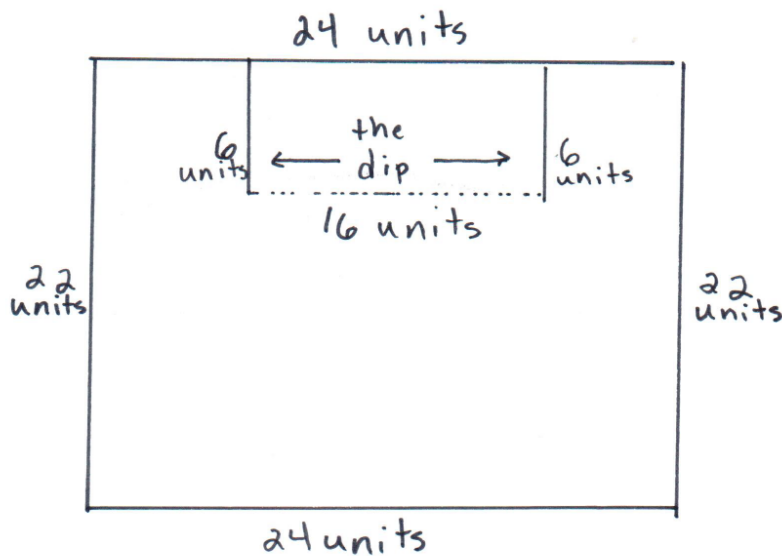 24 units
6
units
the
dip
6
units
16 units
22
units
22
units
24 units